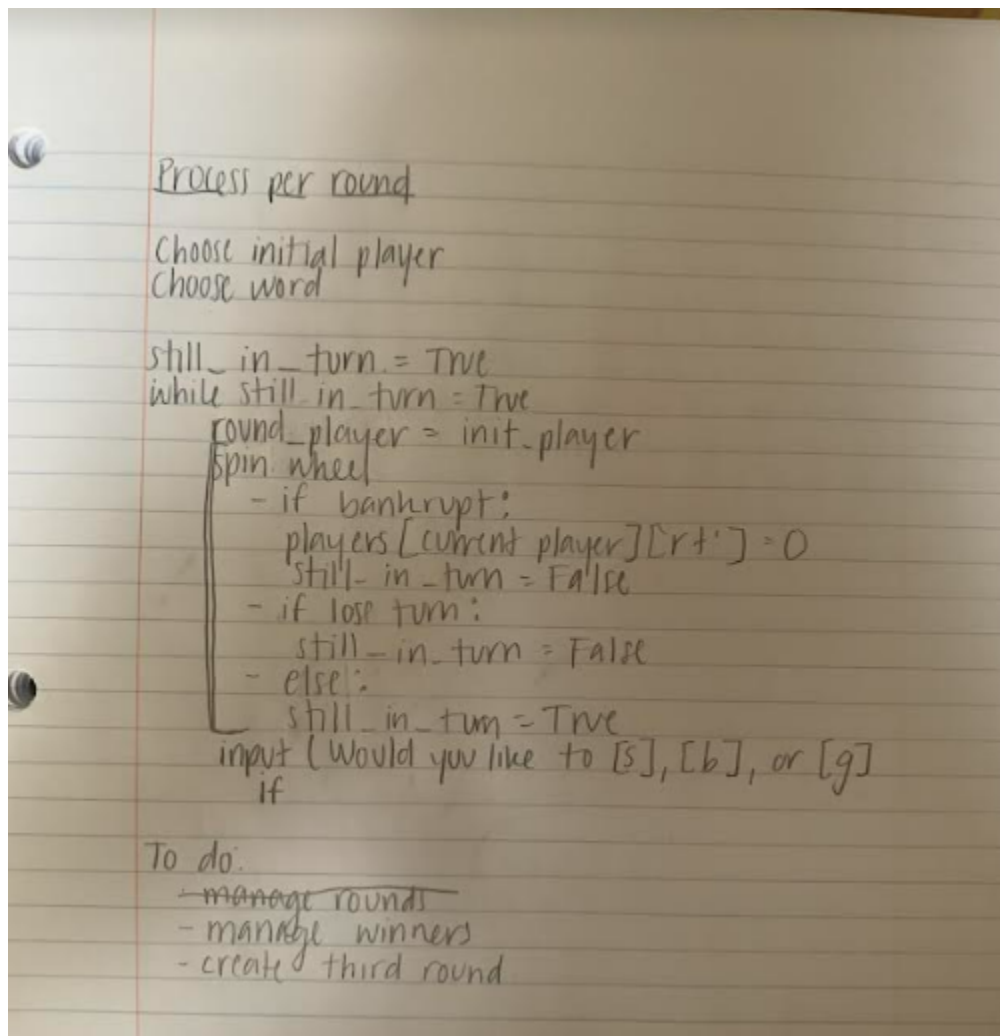 Process per round
Choose initial player
Choose word
still_in_turn = True
while still_in_turn = True
round_player = init_player
spin wheel
- if bankrupt:
players [current player][rt.] = 0
still_in_turn = False
- if lose turn:
still_in_turn = False
- else:
still_in_turn = True
input (Would you like to [s], [b], or [g]
if
To do:
- manage rounds
- manage winners
- create third round